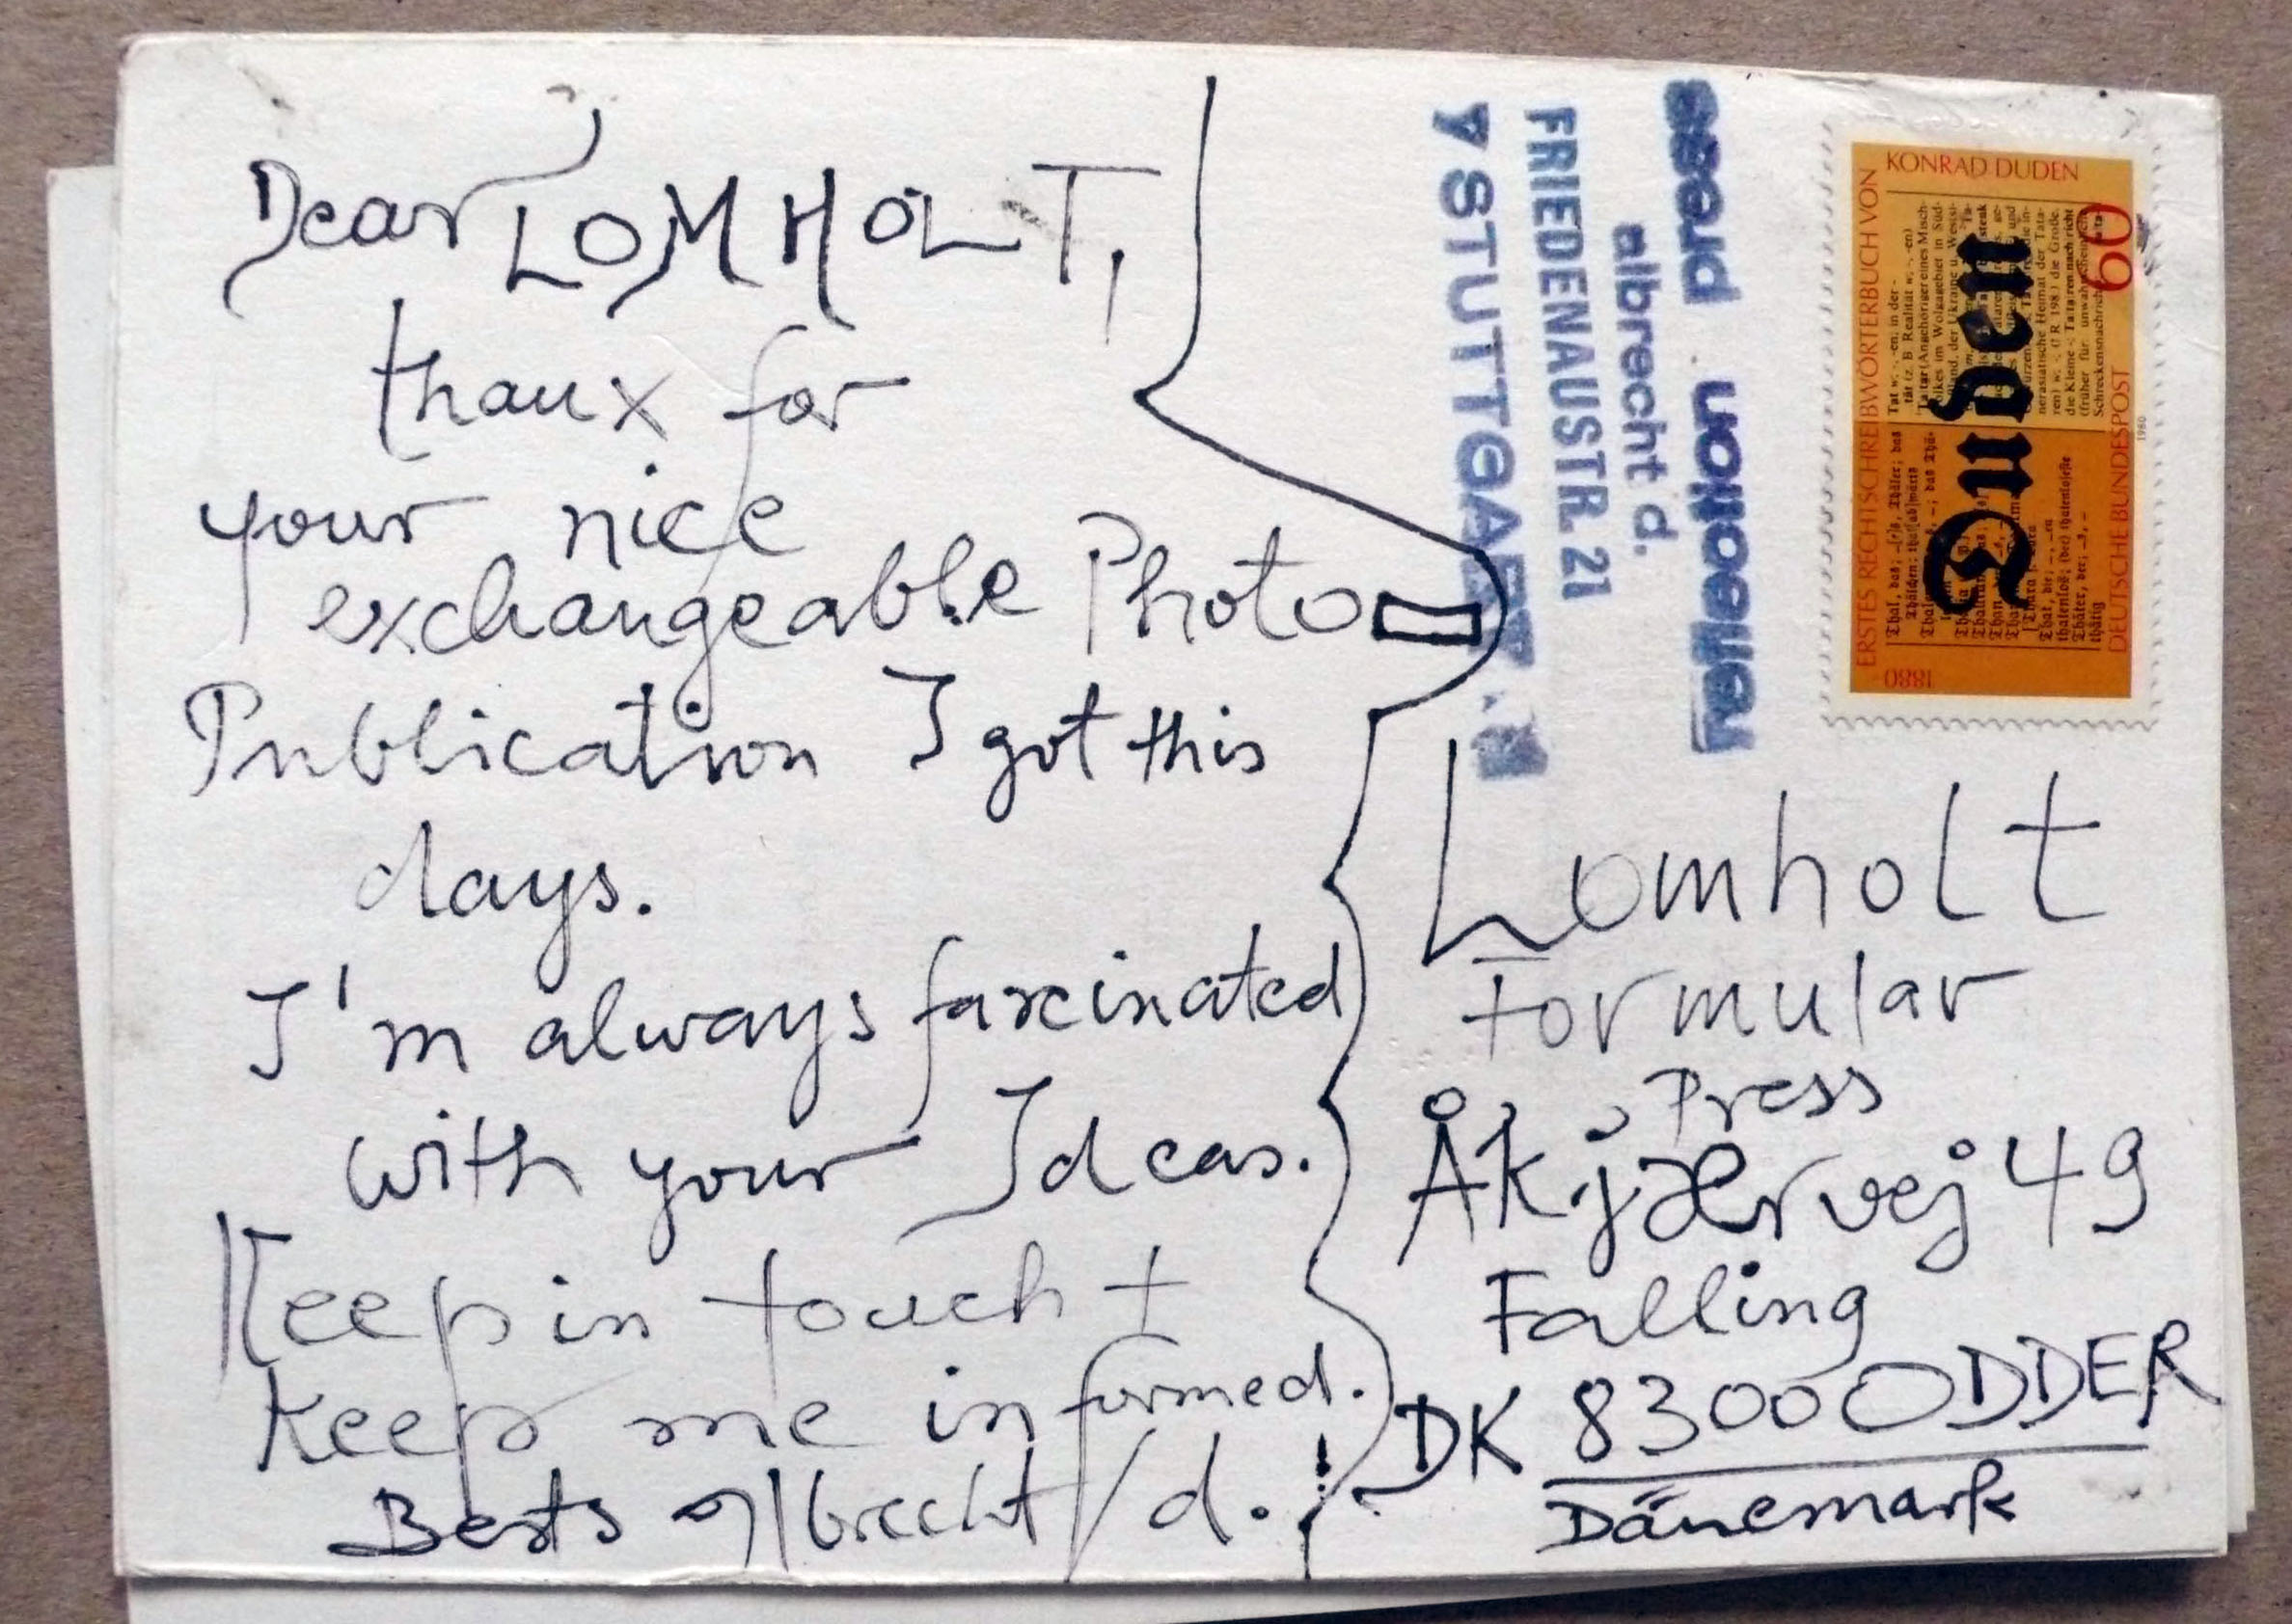 Dear LOMHOLT,
thanx for
your nice
exchangeable Photo
Publication I got this
days.
I'm always fascinated
with your Ideas.
Keep in touch +
Keep me informed.
Bests albrecht/d.
reflection press
albrecht d.
FRIEDENAUSTR. 21
STUTTGART
KONRAD DUDEN
ERSTES RECHTSCHREIBWÖRTERBUCH VON
Duden
60
DEUTSCHE BUNDESPOST
1880
1980
Lomholt
Formular
Press
Åkjærvej 49
Falling
DK 8300 ODDER
Dänemark